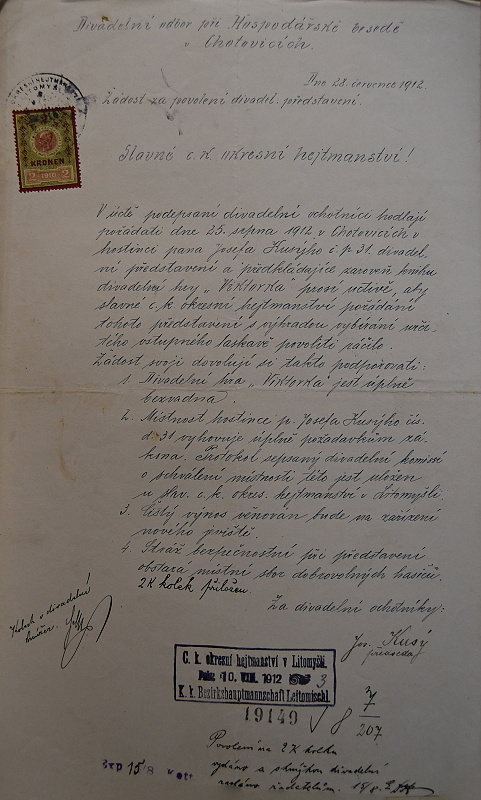 Divadelní odbor při Hospodářské besedě
v Chotovicích.
Dne 28. července 1912.
Žádost za povolení divadel. představení.
KRONEN
2 1910 2
Slavné c. k. okresní hejtmanství!
V úctě podepsaní divadelní ochotníci hodlají
pořádati dne 25. srpna 1912 v Chotovicích v
hostinci pana Josefa Kusýho č. p. 31. divadel
ní představení a předkládajíce zároveň knihu
divadelní hry „Viktorka" prosí uctivě, aby
slavné c. k. okresní hejtmanství pořádání
tohoto představení s výhradou vybírání urči-
tého vstupného laskavě povoliti ráčilo.
Žádost svoji dovolují si takto podporovati:
1. Divadelní hra „Viktorka" jest úplně
bezvadna.
2. Místnost hostince p. Josefa Kusýho čís.
d. 31 vyhovuje úplně požadavkům zá-
kona. Protokol sepsaný divadelní komisí
o schválení místnosti této jest uložen
u slav. c. k. okres. hejtmanství v Litomyšli.
3. Čistý výnos věnován bude na zařízení
nového jeviště.
4. Stráž bezpečnostní při představení
obstará místní sbor dobrovolných hasičů.
2K kolek přiložen
Za divadelní ochotníky:
Jos. Kusý
předseda
C. k. okresní hejtmanství v Litomyšli
10. VIII. 1912 3
K. k. Bezirkshauptmannschaft Leitomischl.
19149
8 7
207
Povolení na 2K kolku
vydáno a s knížkou divadelní
zasláno žadatelům. 15/8
15/8